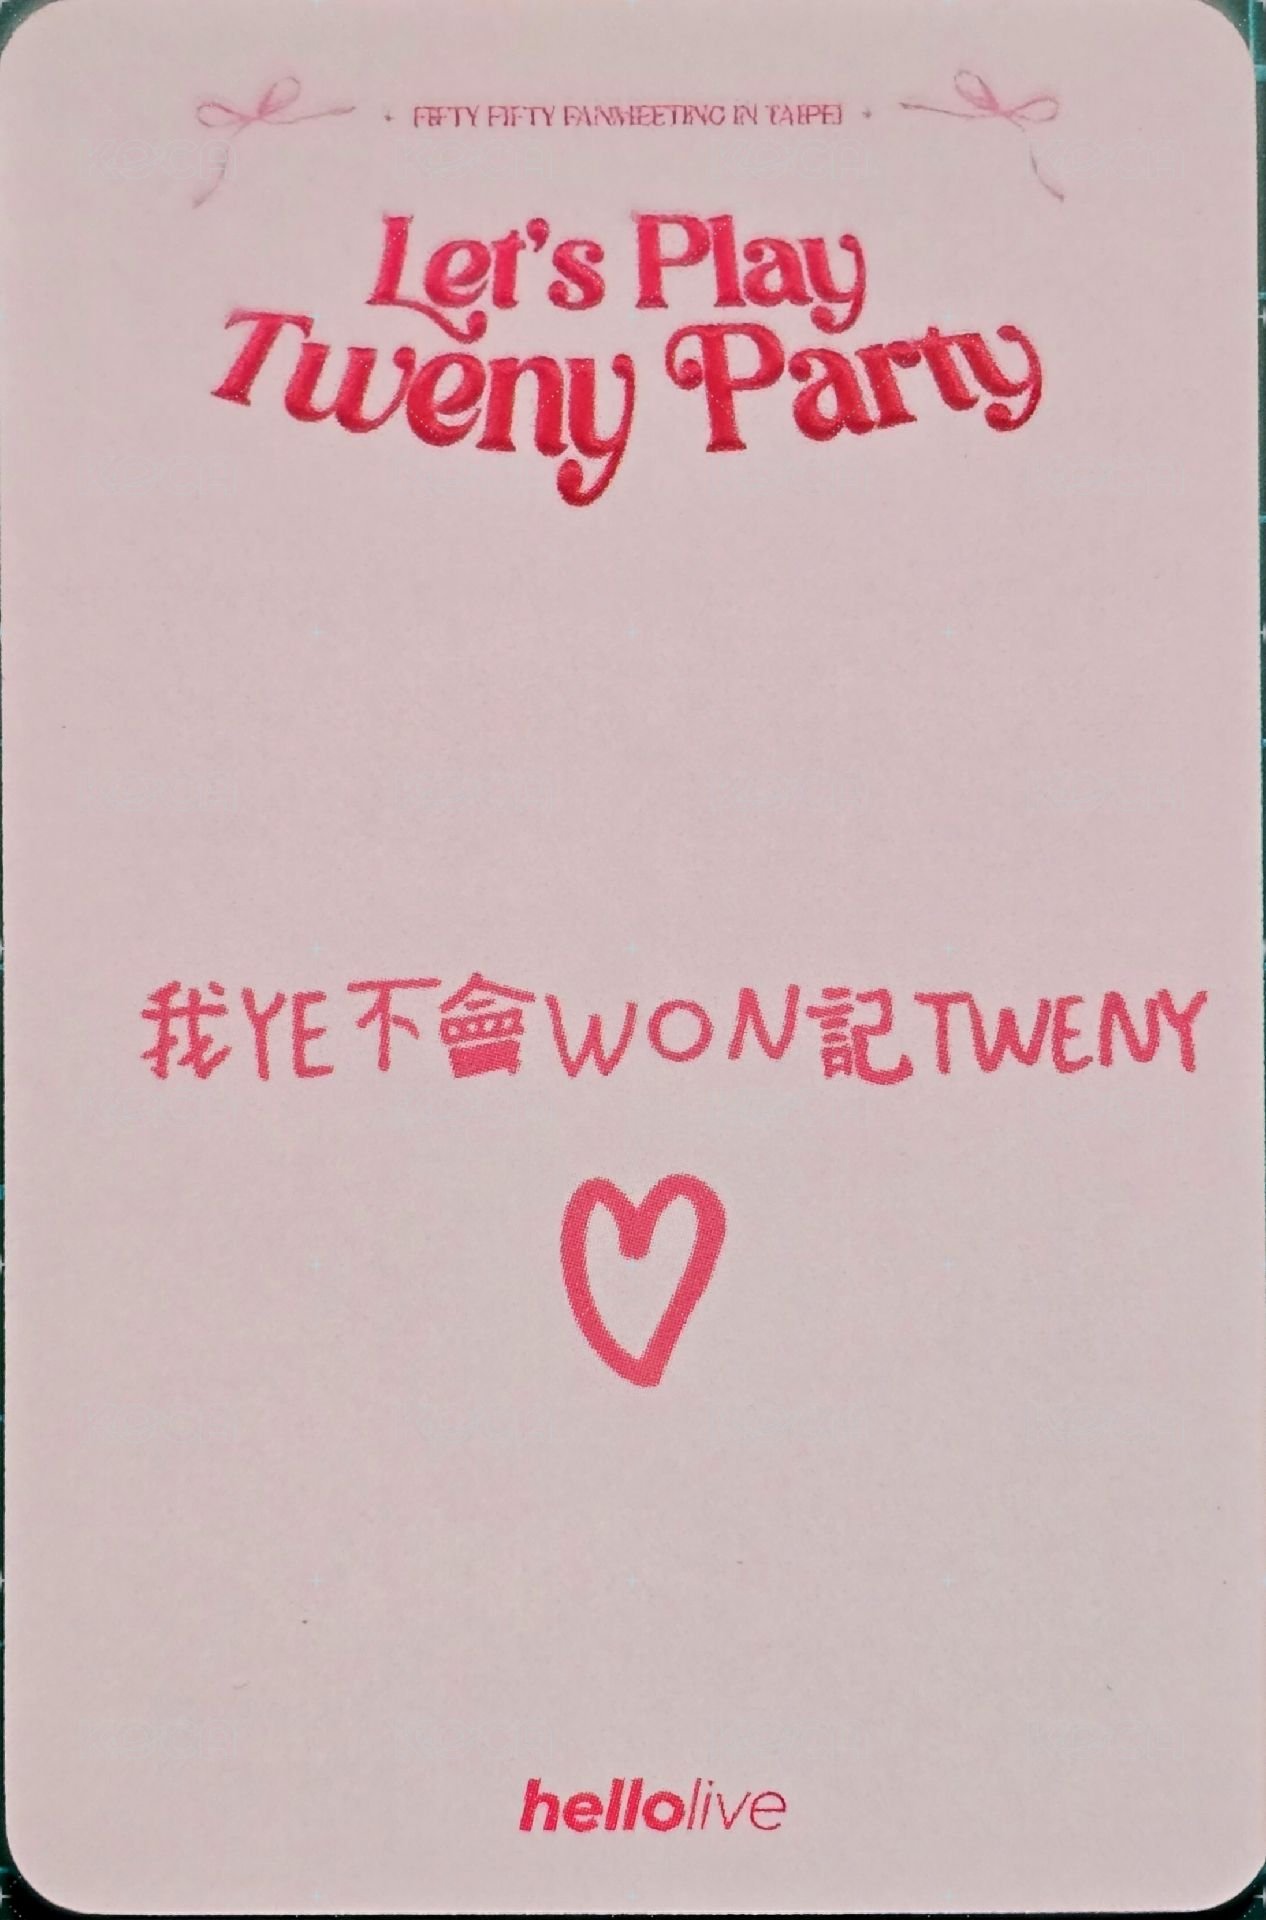 FIFTY FIFTY FANMEETING IN TAIPEI
Let's Play
Tweny Party
我YE不會WON記TWENY
hellolive